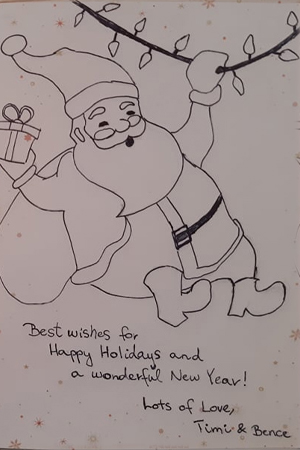 Best wishes for
Happy Holidays and
a wonderful New Year!
Lots of Love,
Timi & Bence